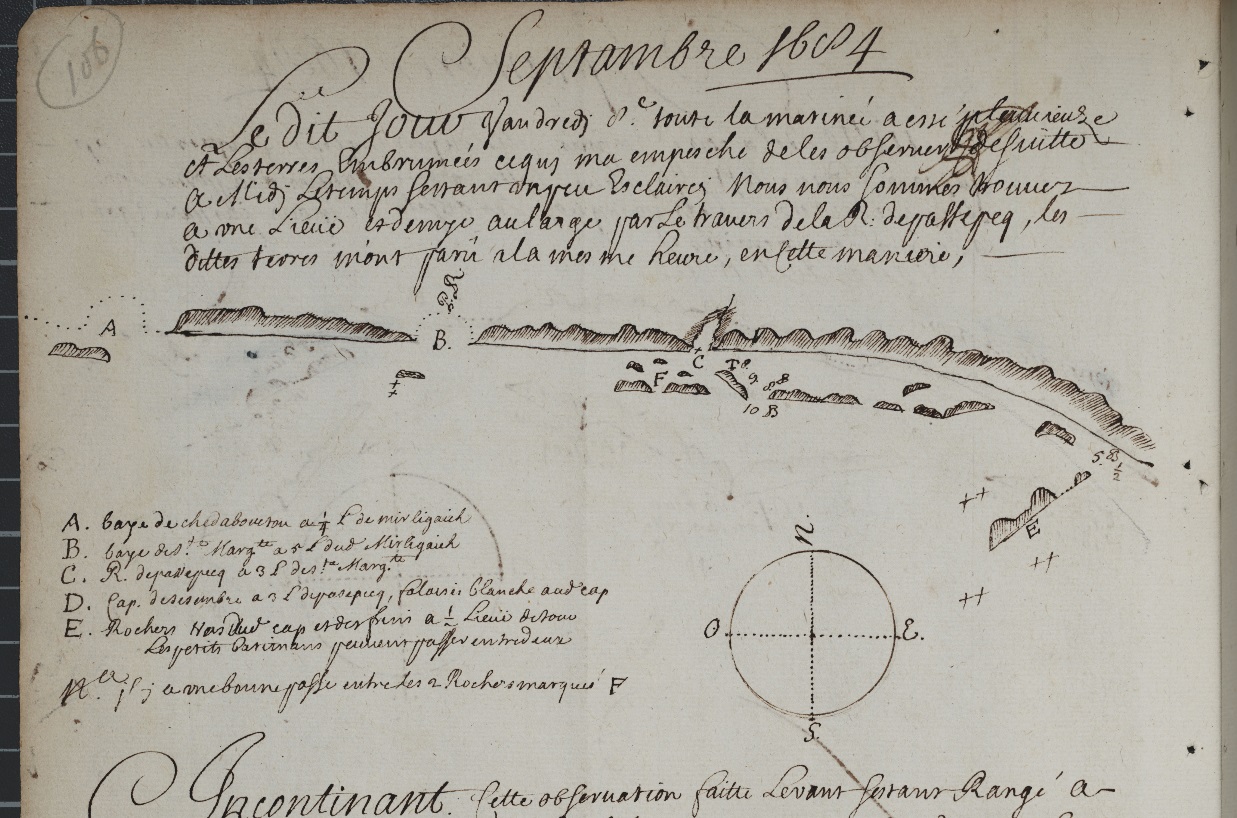 106
Septambre 1684
Le dit Jour Vandredj 8.e toutte la matineé a esté pluuieuze
et Les terres Embrumeés ce quj ma empesché de les observer de suitte
a Midj Le temps sestant un peu Esclaircj Nous nous sommes trouuez
a une Lieüe et demye au large par Le travers de la R. de passepeq, les
dittes terres m'ont parü a la mesme heure, en Cette maniere,
A
B.
C
F
8.
9.
8 8
10 B
5. B 1/2
E
A. baye de chedabouctou a 1/4 L de mirligaich
B. baye de S.te Marg.te a 5 L dud Mirligaich
C. R. de passepeq a 3 L de S.te Marg.te
D. Cap. de sesambre a 3 L de passepeq, falaise blanche aud cap
E. Rochers dud cap et des a 1/2 Lieüe
Les petits bastimans peuuent passer entre deux
N.a jl j a une bonne passe entre les 2 Rochers marqués F
N.
O.
E.
S.
Incontinant Cette observation faitte Le vant sestant Rangé a